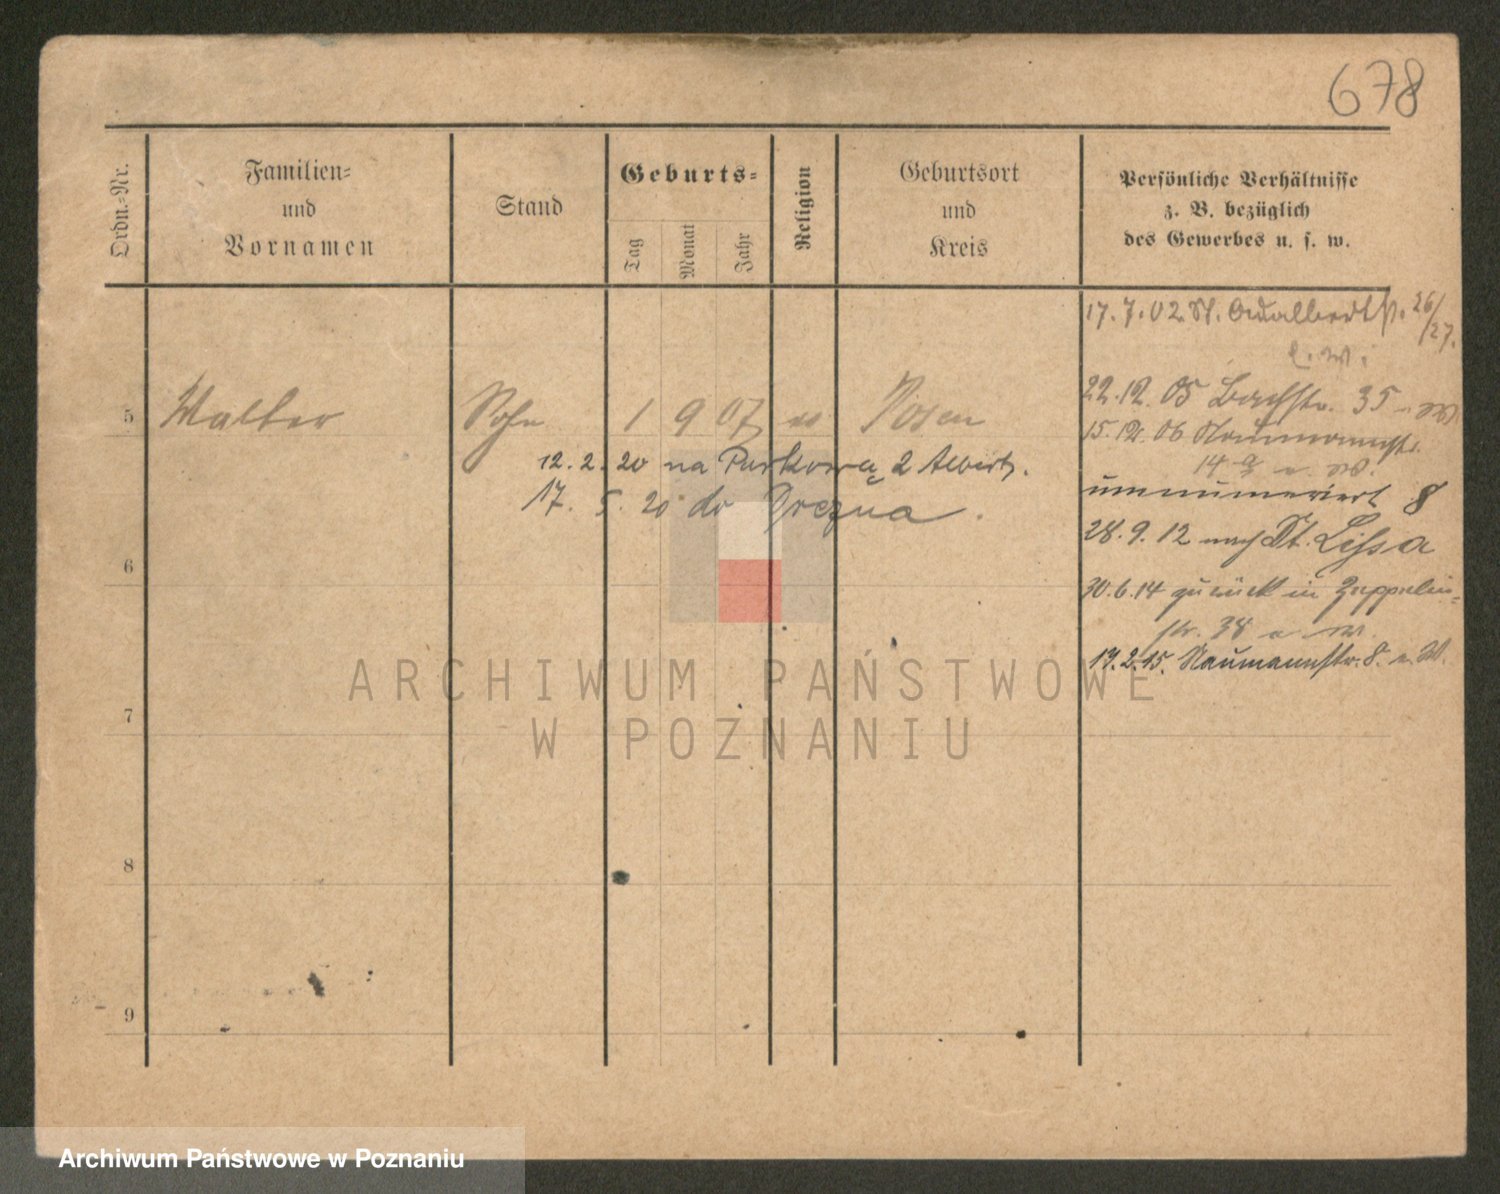 678
Ordn.-Nr.
Familien-
und
Vornamen
Stand
Geburts-
Tag
Monat
Jahr
Religion
Geburtsort
und
Kreis
Persönliche Verhältnisse
z. B. bezüglich
des Gewerbes u. s. w.
17.7.02 St. Adalbertstr. 26/27.
e. W.
5 Walter Sohn 1 9 07 Posen
22.12.05 Bachstr. 35
15.12.06 Naumannstr.
14
12.2.20 na Parkową 2
17.5.20 do Drezna.
umnumeriert 8
28.9.12 nach Dt. Lissa
30.6.14 zurück in Zeppelin-
str. 38
17.2.15. Naumannstr. 8.
6
7
8
9
ARCHIWUM PAŃSTWOWE
W POZNANIU
Archiwum Państwowe w Poznaniu